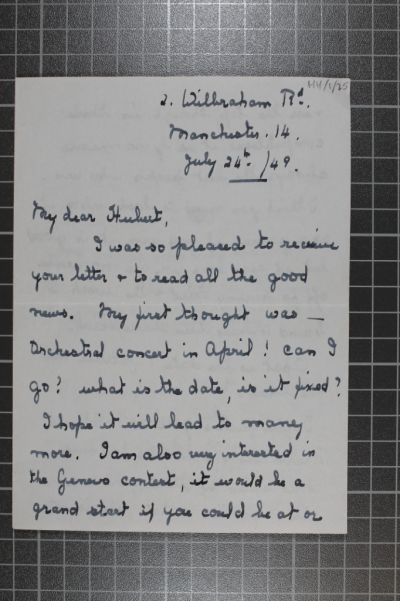 HH/1/25
2. Wilbraham Rd.
Manchester. 14.
July 24th /49.
My dear Hubert,
I was so pleased to receive
your letter & to read all the good
news. My first thought was —
Orchestral concert in April! can I
go? what is the date, is it fixed?
I hope it will lead to many
more. I am also very interested in
the Geneva contest, it would be a
grand start if you could be at or